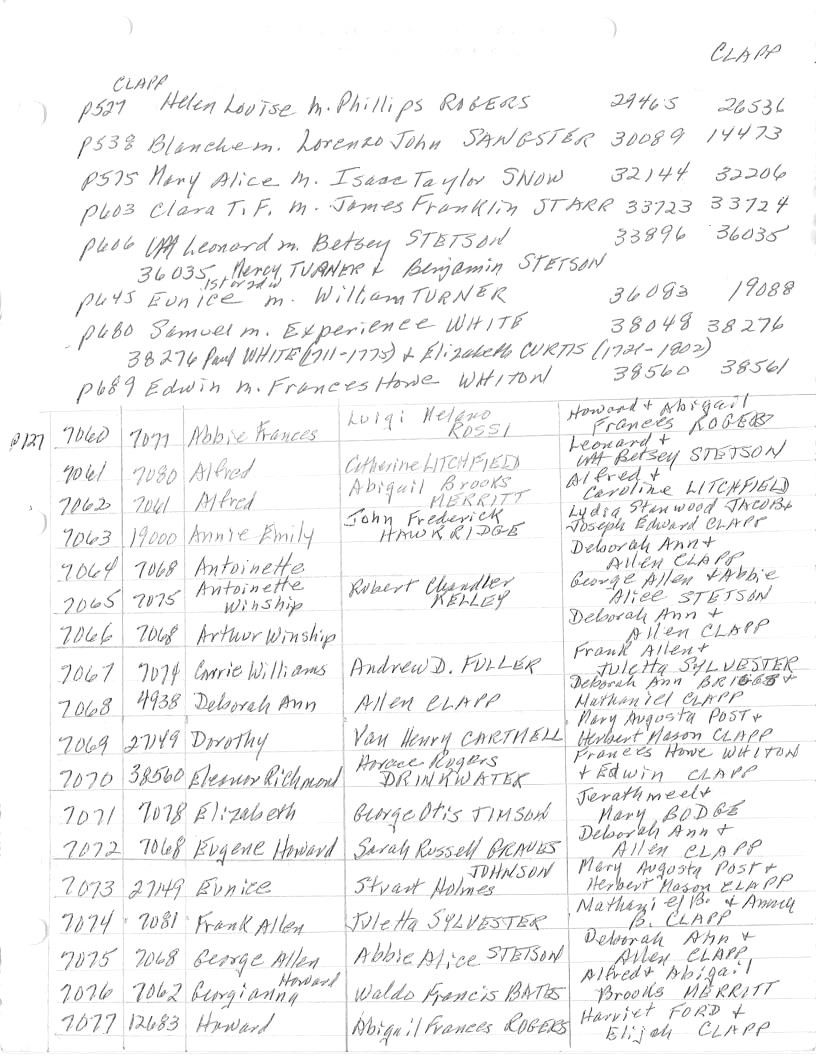 CLAPP
CLAPP
p527 Helen Louise m. Phillips ROGERS 29465 26536
p538 Blanche m. Lorenzo John SANGSTER 30089 14473
p575 Mary Alice m. Isaac Taylor SNOW 32144 32206
p603 Clara T.F. m. James Franklin STARR 33723 33724
p606 Leonard m. Betsey STETSON 33896 36035
36035 Mercy TURNER + Benjamin STETSON
1st or 2d w
p645 Eunice m. William TURNER 36083 19088
p680 Samuel m. Experience WHITE 38048 38276
38276 Paul WHITE (1711-1775) + Elizabeth CURTIS (1721-1802)
p689 Edwin m. Frances Howe WHITON 38560 38561
p127 7060 7077 Abbie Frances Luigi Melano ROSSI Howard + Abigail Frances ROGERS
7061 7080 Alfred Catherine LITCHFIELD Leonard + Betsey STETSON
7062 7061 Alfred Abigail Brooks MERRITT Alfred + Caroline LITCHFIELD
7063 19000 Annie Emily John Frederick HAWKRIDGE Lydia Stanwood JACOB + Joseph Edward CLAPP
7064 7068 Antoinette Deborah Ann + Allen CLAPP
7065 7075 Antoinette Winship Robert Chandler KELLEY George Allen + Abbie Alice STETSON
7066 7068 Arthur Winship Deborah Ann + Allen CLAPP
7067 7074 Carrie Williams Andrew D. FULLER Frank Allen + Juletta SYLVESTER
7068 4938 Deborah Ann Allen CLAPP Deborah Ann BRIGGS + Nathaniel CLAPP
7069 27149 Dorothy Van Henry CARTMELL Mary Augusta POST + Herbert Mason CLAPP
7070 38560 Eleanor Richmond Horace Rogers DRINKWATER Frances Howe WHITON + Edwin CLAPP
7071 7078 Elizabeth George Otis TIMSON Jerathmeel + Mary BODGE
7072 7068 Eugene Howard Sarah Russell GRAVES Deborah Ann + Allen CLAPP
7073 27149 Eunice Stuart Holmes JOHNSON Mary Augusta Post + Herbert Mason CLAPP
7074 7081 Frank Allen Juletta SYLVESTER B. + B. CLAPP
7075 7068 George Allen Abbie Alice STETSON Deborah Ann + Allen CLAPP
7076 7062 Georgianna Howard Waldo Francis BATES Alfred + Abigail Brooks MERRITT
7077 12683 Howard Abigail Frances ROGERS Harriet FORD + Elijah CLAPP